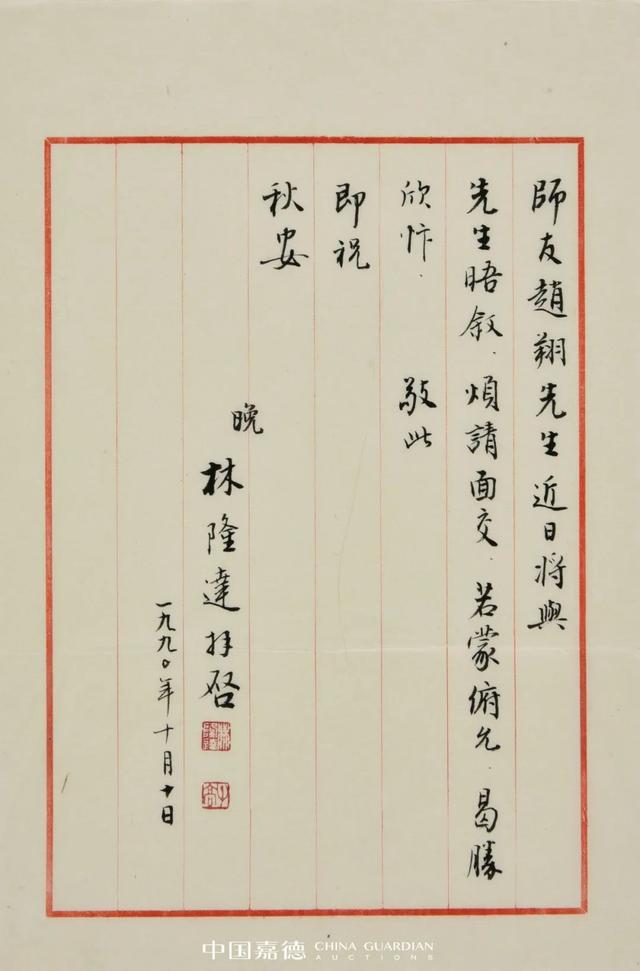 師友趙翔先生近日将與
先生晤叙.煩請面交.若蒙俯允.曷勝
欣忭. 敬此
即祝
秋安
晚
林隆達拜啓
一九九〇年十月十日
中国嘉德 CHINA GUARDIAN
AUCTIONS